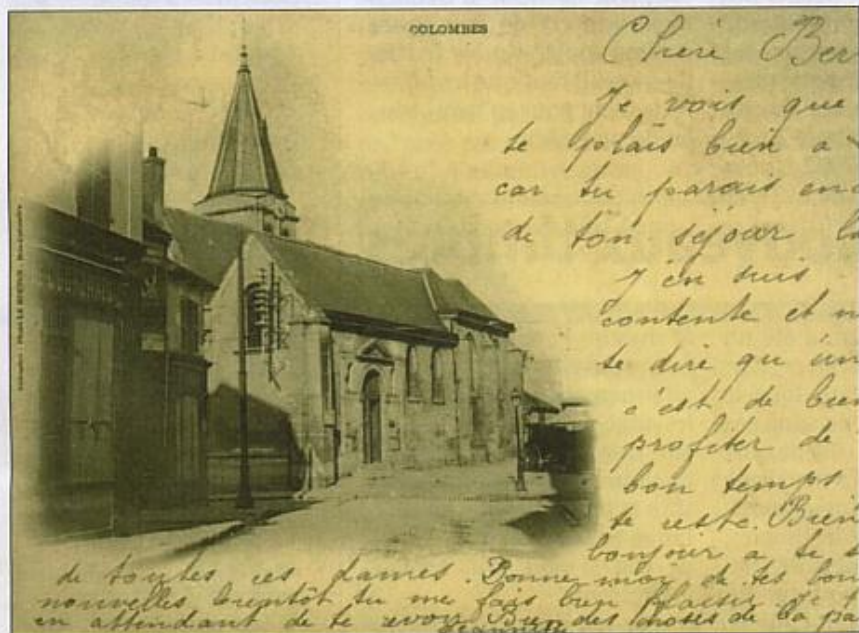 COLOMBES
Cheri Ber
Je vois que
te plais bien a
car tu parais en
de ton séjour la
J'en suis
contente et
te dire qu'un
c'est de bien
profiter de
bon temps
te reste. Bien
bonjour a te
de toutes ces dames. Donne moi de tes bon
nouvelles bientôt tu me fais bien plaisir. Je
en attendant de te revoir. Bien des choses de la pa
Jeannette